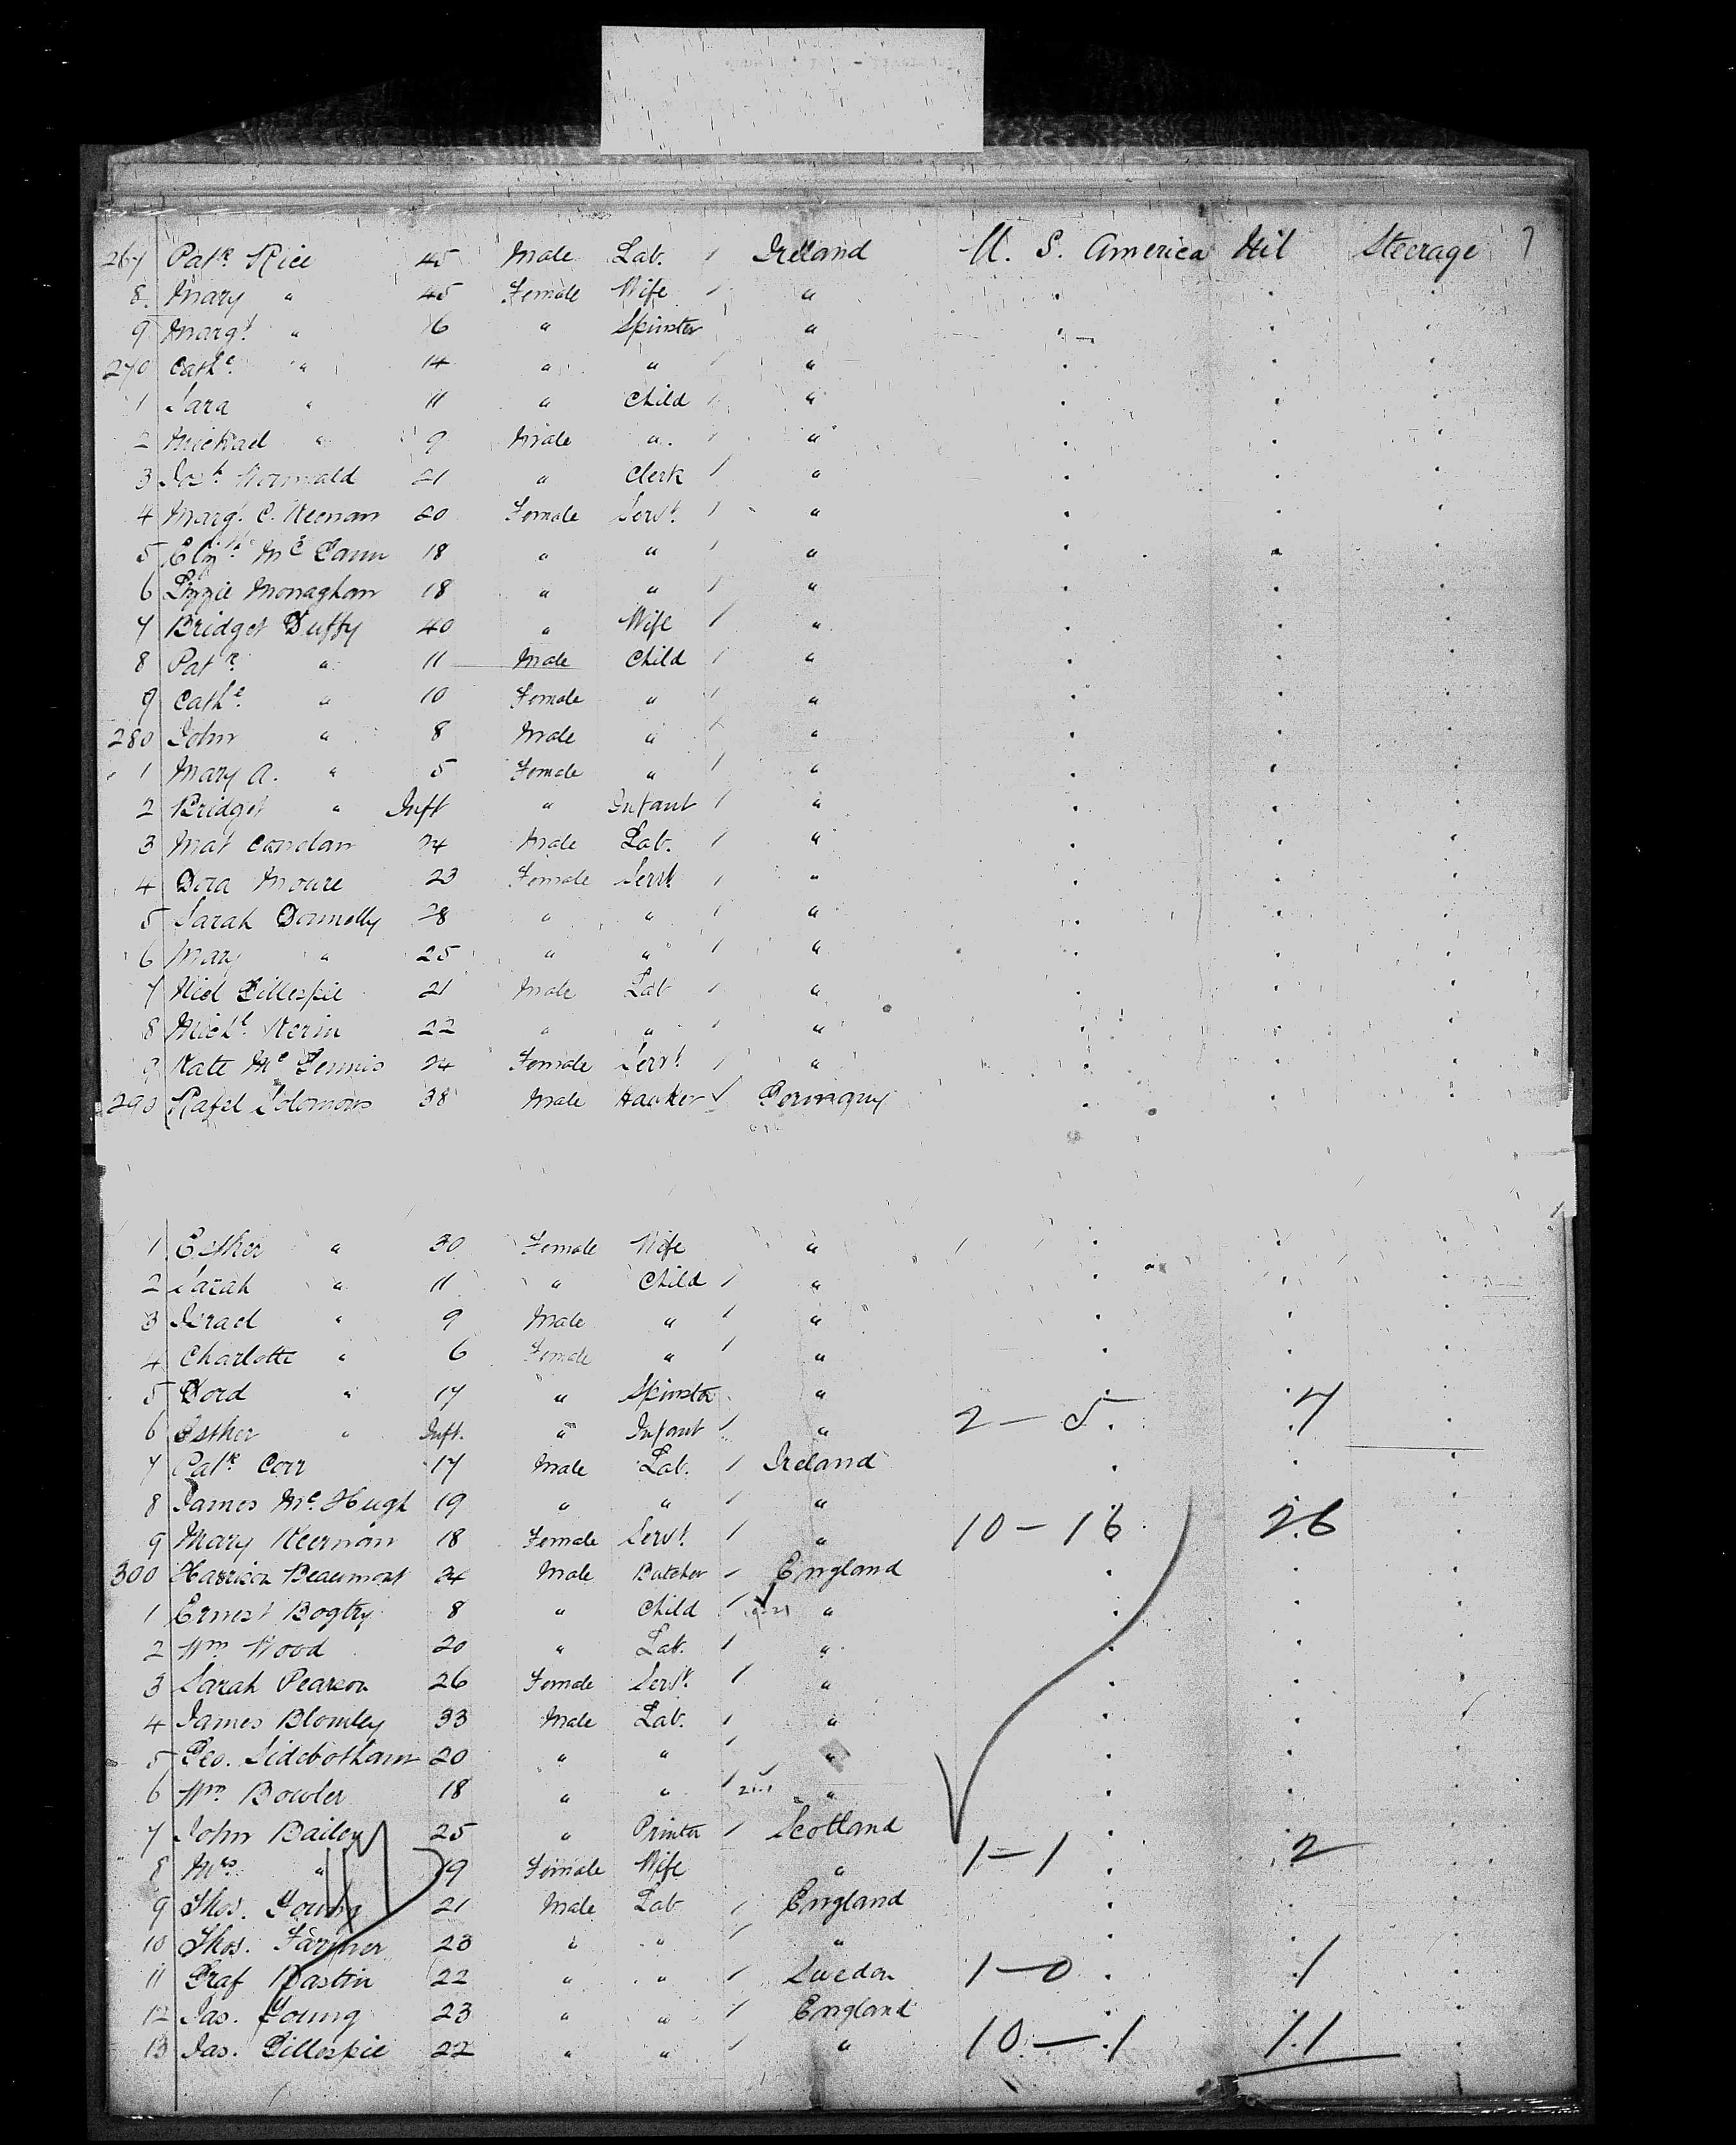 267 Patk. Rice 45 Male Lab. / Ireland U. S. America Nil Steerage 7
8 Mary " 45 Female Wife / " . . .
9 Margt. " 16 " Spinster " " . .
270 Cathe. " 14 " " / " . . .
1 Sara " 11 " Child / " . . .
2 Michael " 9 Male " / " . . .
3 Josh. Wormald 21 " Clerk / " . . .
4 Margt. C. Keenan 20 Female Servt. / " . . .
5 Elizth. Mc Cann 18 " " / " . . .
6 Lizzie Monaghan 18 " " / " . . .
7 Bridget Duffy 40 " Wife / " . . .
8 Patk. " 11 Male Child / " . . .
9 Cathe. " 10 Female " / " . . .
280 John " 8 Male " / " . . .
1 Mary A. " 5 Female " / " . . .
2 Bridget " Inft " Infant / " . . .
3 Mat 24 Male Lab. / " . . .
4 Dora Moure 23 Female Servt. / " . . .
5 Sarah Donnelly 28 " " / " . . .
6 Mary " 25 " " / " . . .
7 Gillespie 21 Male Lab / " . . .
8 Michl. Kerin 22 " " / " . . .
9 Kate Mc 24 Female Servt. / " . . .
290 Rafel Solomons 38 Male Hawker / Germany . . .
1 Esther " 30 Female Wife " / . . .
2 Sarah " 11 " Child / " . . .
3 Israel " 9 Male " / " . . .
4 Charlotte " 6 Female " / " . . .
5 Dord " 17 " Spinster " . . .
6 Esther " Inft. " Infant / " 2 — 5 . 7 .
7 Patk. Corr 17 Male Lab. / Ireland . . .
8 James Mc. Hugh 19 " " / " . . .
9 Mary Keernan 18 Female Servt. / " 10 — 16 26 .
300 Harrison Beaumont 24 Male Butcher / England . . .
1 Ernest 8 " Child / " . . .
2 Wm. Wood 20 " Lab. / " . . .
3 Sarah Pearson 26 Female Servt. / " . . .
4 James Blomley 33 Male Lab. / " . . .
5 Geo. Sidebotham 20 " " / " . . .
6 Wm. Bowler 18 " " / " . . .
7 John Bailey 25 " Printer / Scotland . . .
8 Mrs. " 19 Female Wife " 1 — 1 . 2 .
9 Thos. Young 21 Male Lab / England . . .
10 Thos. Farmer 23 " " / " . . .
11 Graf Bastin 22 " " / Sweden 1 — 0 . 1 .
12 Jas. Young 23 " " / England . . .
13 Jas. Gillespie 22 " " / " 10 — 1 11 .